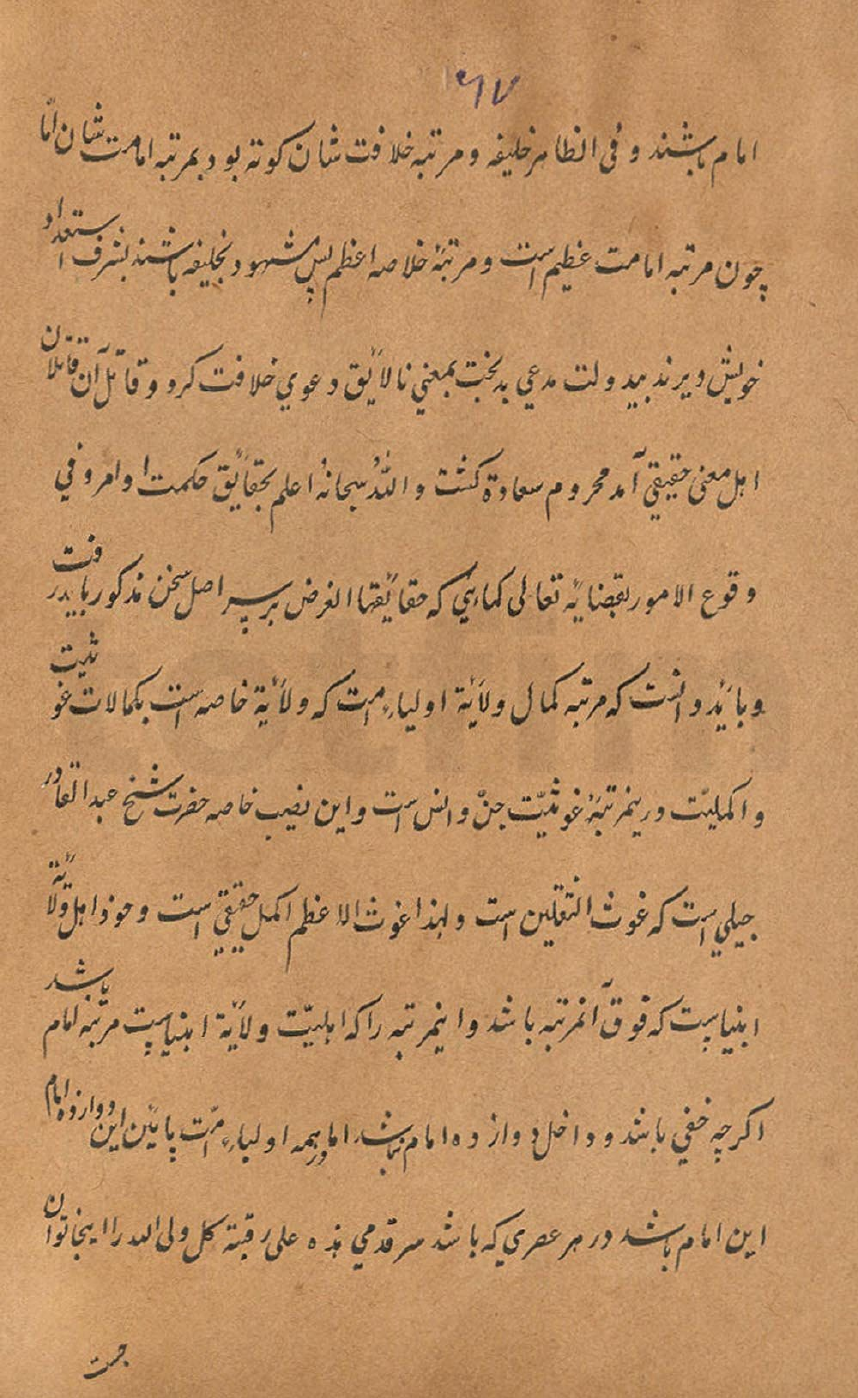 ۱۶۷
امام باشند و فی الظاهر خلیفه و مرتبه خلافت شان کوته بود بمرتبه امامت شان اما
چون مرتبه امامت عظیم است و مرتبهٔ خلاصه اعظم پس مشهود بخلیفه باشند بشرف استعداد
خویش دیرند بید ولت مدعی بدبخت بمعنی نالائق دعوی خلافت کرد و قاتل آن قاتلان
اهل معنی حقیقی آمد محروم سعادة کشت و اللهُ سبحانهُ اعلم بحقائق حکمت اوامر و فی
وقوع الامور بقضایه تعالی کماهی که حقائقها الغرض بر سر اصل سخن مذکور باید رفت
و باید دانست که مرتبه کمال ولایة اولیاء امت که ولایة خاصه است بکمالات غوثیت
و اکملیّت درینمرتبهٔ غوثیّت جنّ و انس است و این نصیب خاصه حضرت شیخ عبد القادر
جیلی است که غوث الثقلین است و لهذا غوث الاعظم اکمل حقیقی است و خود اهل ولایة
انبیاست که فوق آنمرتبه باشد و اینمرتبه را که اهلیّت ولایة انبیاست مرتبه امام باشد
اکرچه خفی باشد و داخل دوازده امام نباشد اما و همه اولیاء امّت پائین این دوازده امام
این امام باشد در هر عصری که باشد سر قدمی هذه علی رقبة کل ولی الله را اینجا توان
جست